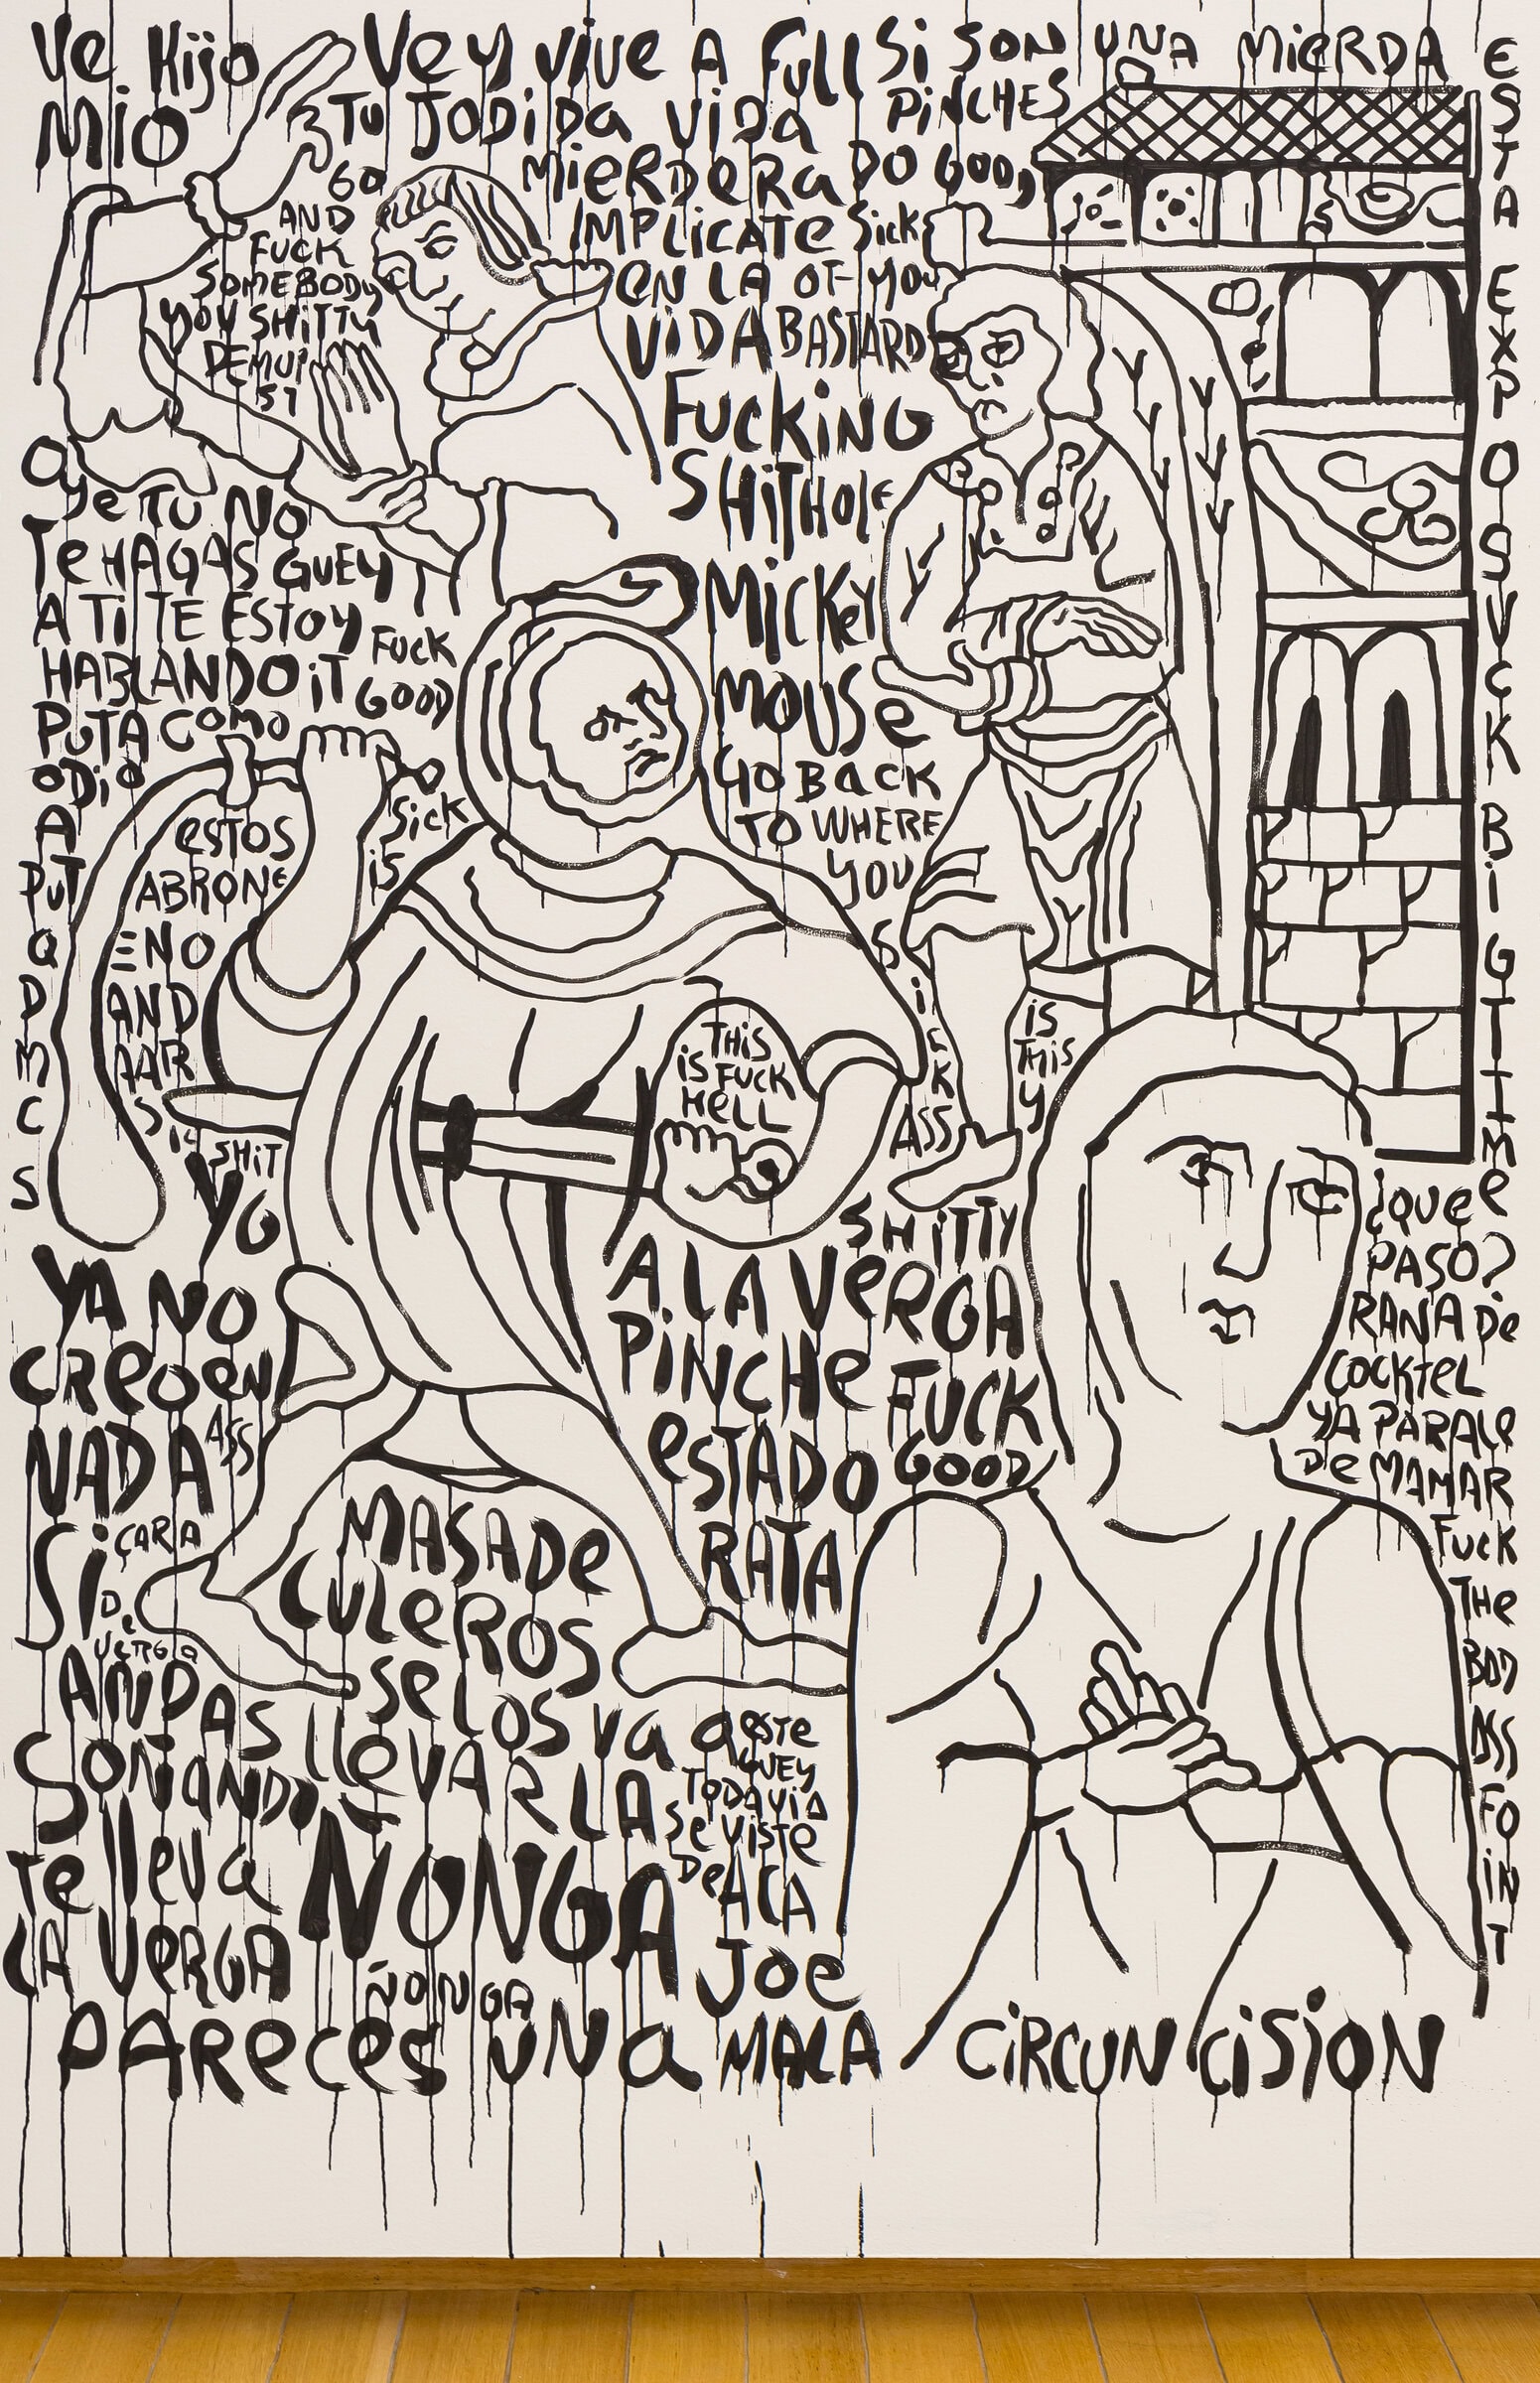 Ve Hijo
MIO
Vey ViVe A Full
TU JODiDa ViDa
MieRDeRa
Si SON UNA MiERDA
PiNCHES
DO GOD,
IMPLiCATe
EN LA
ViDA
SiCK
OF YOU
BASTARD
GO
AND
FUCK
SOMEBODY
YOU SHiTTY
FUCKiNG
SHiTHOLE
MiCKeY
MOUSe
GO BaCK
TO WHERE
YOU
SiCK
ASS
iS
THiS
SHiTTY
ESTA EXPO SUCK BiG TiME
Oye TU NO
Te HAGAS GUEY
A Ti TE ESTOY
HABLANDO
PUTA COMO
ODiO
A
iT
FUCK
GOOD
SiCK
iS
eSTOS
THiS
iS FUCK
HeLL
SHiT
YO
YA NO
CReO eN
NADA
ASS
Si
CARA
De
VeRGa
ANDAS
SONANDO
Te lleva
LA VeRGA
PAReCeS UNa
MASA De
CULeROS
Se LOS Va a
lleVAR LA
ÑONGA
ÑONGA
A LA VeRGA
PiNCHe
eSTADO
RATA
FUCK
GOOD
eSTe
GUEY
TODAViA
Se ViSTe
De ACA
JOe
MALA
¿QUee
PASO?
RANA De
COCKTeL
YA PARALe
De MAMAR
FUCK
THe
ASS
FO
iN
T
CiRCUNCiSiON